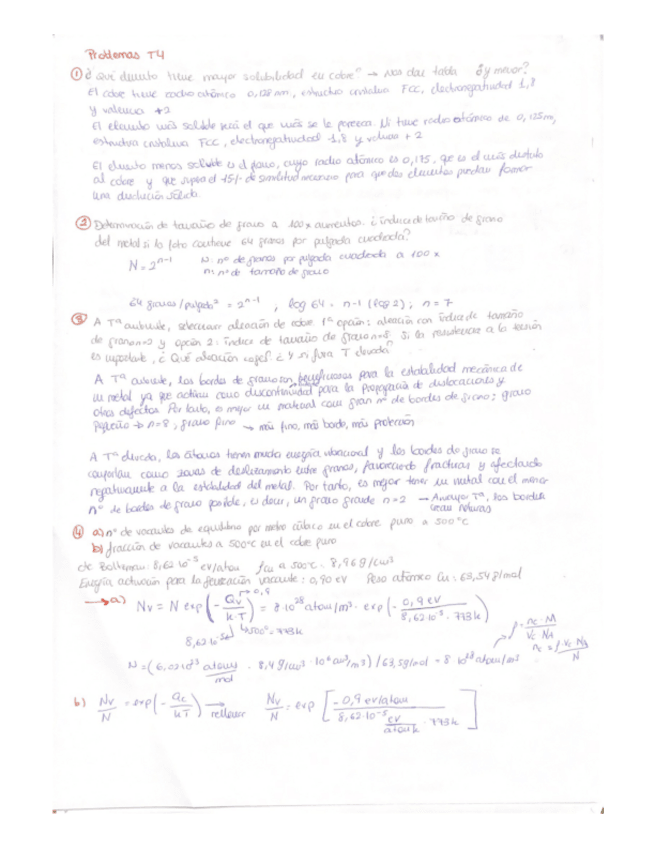 Problemas T4
① ¿Qué elemento tiene mayor solubilidad en cobre? → Nos dan tabla ¿y menor?
El cobre tiene radio atómico 0,128 nm, estructura cristalina FCC, electronegatividad 1,8
y valencia +2
El elemento más soluble será el que más se le parezca. Ni tiene radio atómico de 0,125 nm,
estructura cristalina FCC, electronegatividad 1,8 y valencia +2
El elemento menos soluble es el plomo, cuyo radio atómico es 0,175, que es el más distinto
al cobre y que supera el 15% de similitud necesario para que dos elementos puedan formar
una disolución sólida.
② Determinación de tamaño de grano a 100x aumentos. ¿índice de tamaño de grano
del metal si la foto contiene 64 granos por pulgada cuadrada?
N = 2^n-1 N: nº de granos por pulgada cuadrada a 100x
n: nº de tamaño de grano
64 granos/pulgada² = 2^n-1 , log 64 = n-1 (log 2); n = 7
③ A Tª ambiente, seleccionar aleación de cobre. 1ª opción: aleación con índice de tamaño
de grano n=2 y opción 2: índice de tamaño de grano n=8. Si la resistencia a la tensión
es importante, ¿Qué aleación coges? ¿Y si fuera T elevada?
A Tª ambiente, los bordes de grano son beneficiosos para la estabilidad mecánica de
un metal ya que actúan como discontinuidad para la propagación de dislocaciones y
otros defectos. Por tanto, es mejor un material con gran nº de bordes de grano; grano
pequeño → n=8, grano fino → más fino, más borde, más protección
A Tª elevada, los átomos tienen mucha energía vibracional y los bordes de grano se
comportan como zonas de deslizamiento entre granos, favoreciendo fracturas y afectando
negativamente a la estabilidad del metal. Por tanto, es mejor tener un metal con el menor
nº de bordes de grano posible, es decir, un grano grande n=2 → A mayor Tª, los bordes
crean roturas
④ a) nº de vacantes de equilibrio por metro cúbico en el cobre puro a 500ºC
b) fracción de vacantes a 500ºC en el cobre puro
cte Boltzman: 8,62·10^-5 eV/atom ρcu a 500ºC: 8,96 g/cm³
Energía activación para la formación vacante: 0,90 eV Peso atómico Cu: 63,54 g/mol
→ a) Nv = N exp(- Qv/k·T) = 8·10^28 atom/m³ · exp(- 0,9 eV/8,62·10^-5 · 773k)
→ 0,9
8,62·10^-5 ↳ 500º = 773k
ρ = nc·M/Vc·NA
nc = ρ·Vc·NA/N
N = (6,02·10^23 atomos/mol · 8,4 g/cm³ · 10^6 cm³/m³) / 63,5 g/mol = 8·10^28 atom/m³
b) Nv/N = exp(- Qc/kT) → rellenar Nv/N = exp [ -0,9 eV/atom / 8,62·10^-5 eV/atom k · 773k ]